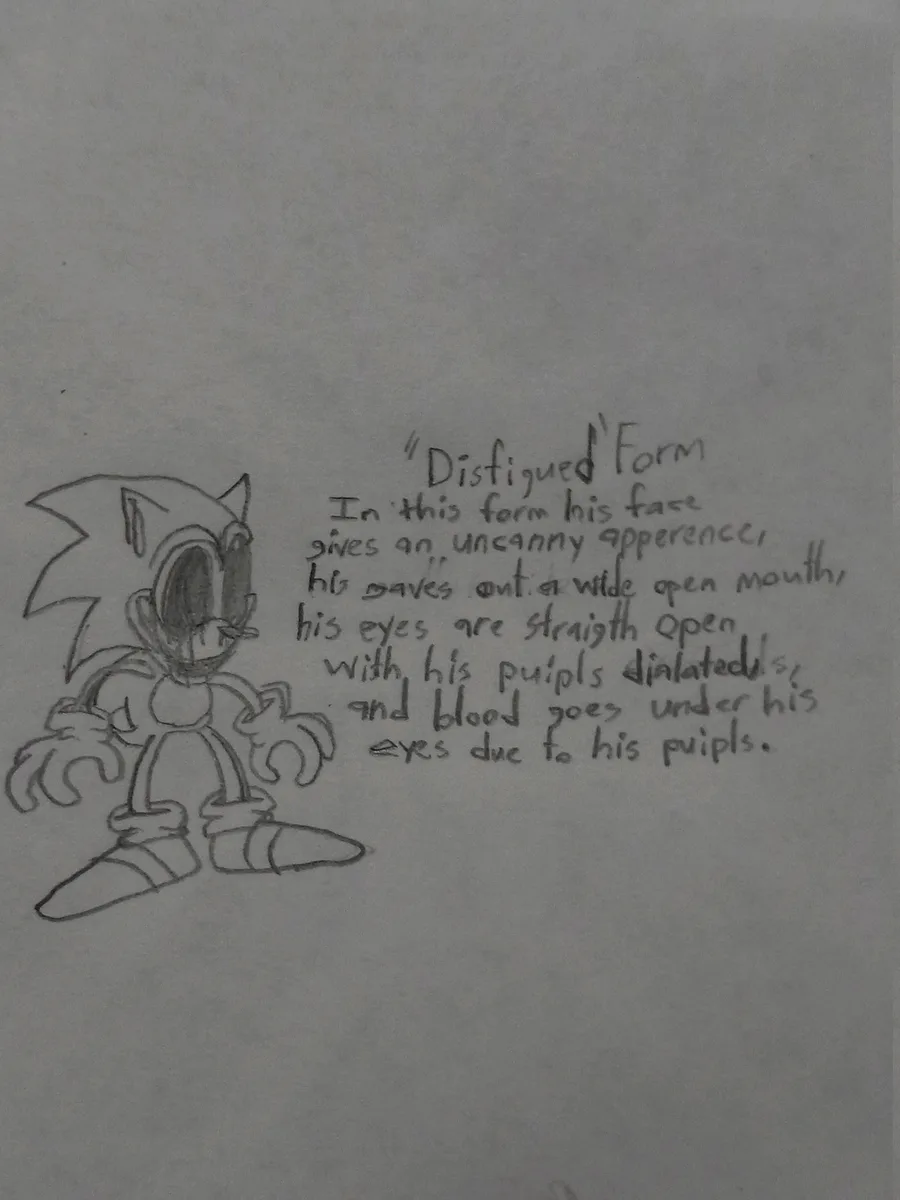 "Disfigued" Form
In this form his face
gives an "uncanny" apperence,
his gaves out a wide open mouth,
his eyes are straigth open
with his puipls dialated,
and blood goes under his
eyes due to his puipls.